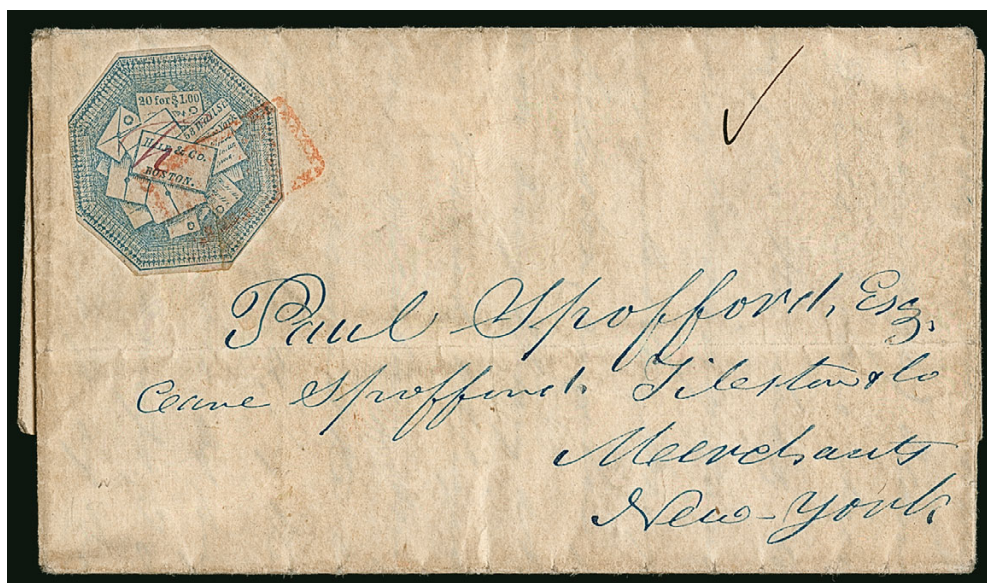 20 for $1.00
68 Wall St.
York
HALE & CO.
BOSTON.
Paul Spofford, Esq.
Care Spofford. Tileston & Co
Merchants
New-York